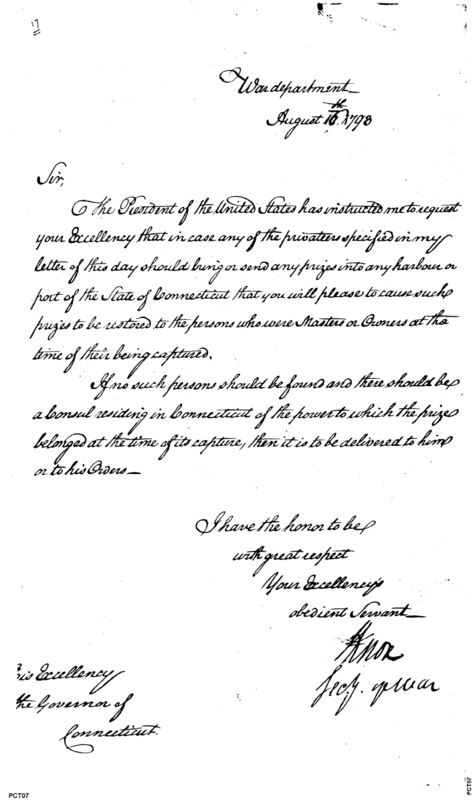 War department
August 16th 1793
Sir,
The President of the United States has instructed me to request
your Excellency that in case any of the privateers specified in my
letter of this day should bring or send any prizes into any harbour or
port of the State of Connecticut that you will please to cause such
prizes to be restored to the persons who were Masters or Owners at the
time of their being captured.
If no such persons should be found and there should be
a Consul residing in Connecticut of the power to which the prize
belonged at the time of its capture, then it is to be delivered to him
or to his Orders
I have the honor to be
with great respect
Your Excellency's
obedient Servant
HKnox
Secy. of War
His Excellency
the Governor of
Connecticut.
PCT07
PCT07